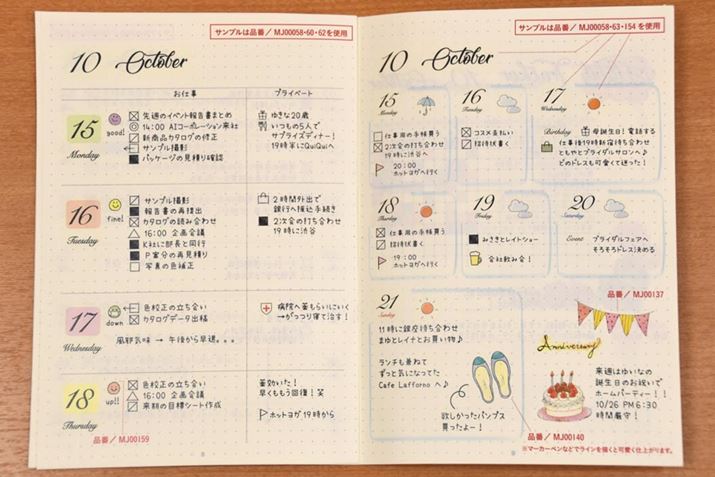 サンプルは品番／MJ00058・60・62を使用
10 October
お仕事
プライベート
15
Monday
good!
先週のイベント報告書まとめ
14:00 AIコーポレーション来社
新商品カタログの修正
サンプル撮影
パッケージの見積り確認
ゆきな20歳
いつもの5人で
サプライズディナー！
19時半にQuiQuiへ
16
Tuesday
fine!
サンプル撮影
報告書の再提出
カタログの読み合わせ
16:00 企画会議
K社に部長と同行
P案分の再見積り
写真の色補正
2時間外出で
銀行へ振込手続き
2次会の打ち合わせ
19時に渋谷
17
Wednesday
down
色校正の立ち会い
カタログデータ出稿
風邪気味 → 午後から早退。。。
病院へ薬もらいにいく
→がっつり寝て治す！
18
Thursday
up!!
色校正の立ち会い
16:00 企画会議
来期の目標シート作成
薬効いた！
早くももう回復！笑
ホットヨガ 19時から
品番／MJ00159
サンプルは品番／MJ00058・63・154を使用
10 October
15
Monday
仕事用の手帳買う
2次会の打ち合わせ
19時に渋谷へ
20:00
ホットヨガへ行く
16
Tuesday
コスメ支払い
招待状書く
17
Wednesday
Birthday
母誕生日！電話する
仕事後19時新宿待ち合わせ
ともやとブライダルサロンへ♪
どのドレスも可愛くて迷った！
18
Thursday
仕事用の手帳買う
招待状書く
19:00
ホットヨガへ行く
19
Friday
みさきとレイトショー
会社飲み会！
20
Saturday
Event
ブライダルフェアへ
そろそろドレス決める
21
Sunday
11時に銀座待ち合わせ
まゆとレイナとお買い物♪
ランチも兼ねて
ずっと気になってた
Cafe Laffornoへ♪
欲しかったパンプス
買ったよー！
品番／MJ00137
Anniversary
来週はゆいなの
誕生日のお祝いで
ホームパーティー！！
10/26 PM 6:30
時間厳守！
品番／MJ00140
※マーカーペンなどでラインを描くと可愛く仕上がります。